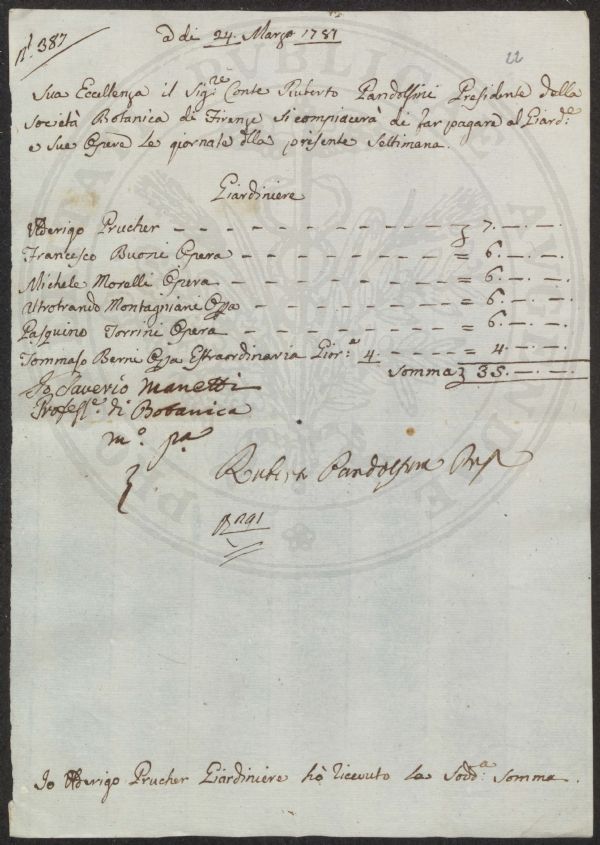 nº. 387
a di 24. Marzo 1781
22
Sua Eccellenza il Sig:re Conte Ruberto Pandolfini Presidente della
Società Botanica di Firenze si compiacerà di far pagare al Giard:e
e sue Opere le giornate della presente Settimana.
Giardiniere
Prucher - - - - - - - - - - - 7. — . —
Francesco Buoni Opera - - - - - - - - - = 6. — . —
Michele Moralli Opera - - - - - - - - - = 6. — . —
Montagniani Opa - - - - - - - - = 6. — . —
Pasquino Torrini Opera - - - - - - - - - = 6. — . —
Tommaso Berni Opa Estraordinaria Gior:a 4. - - - - - = 4. — . —
Somma 35. — . —
Io Saverio Manetti
Profess:e di Botanica
mº. pa
Ruberto Pandolfini Pres
Io Prucher Giardiniere hò ricevuto la Sodd:a Somma.